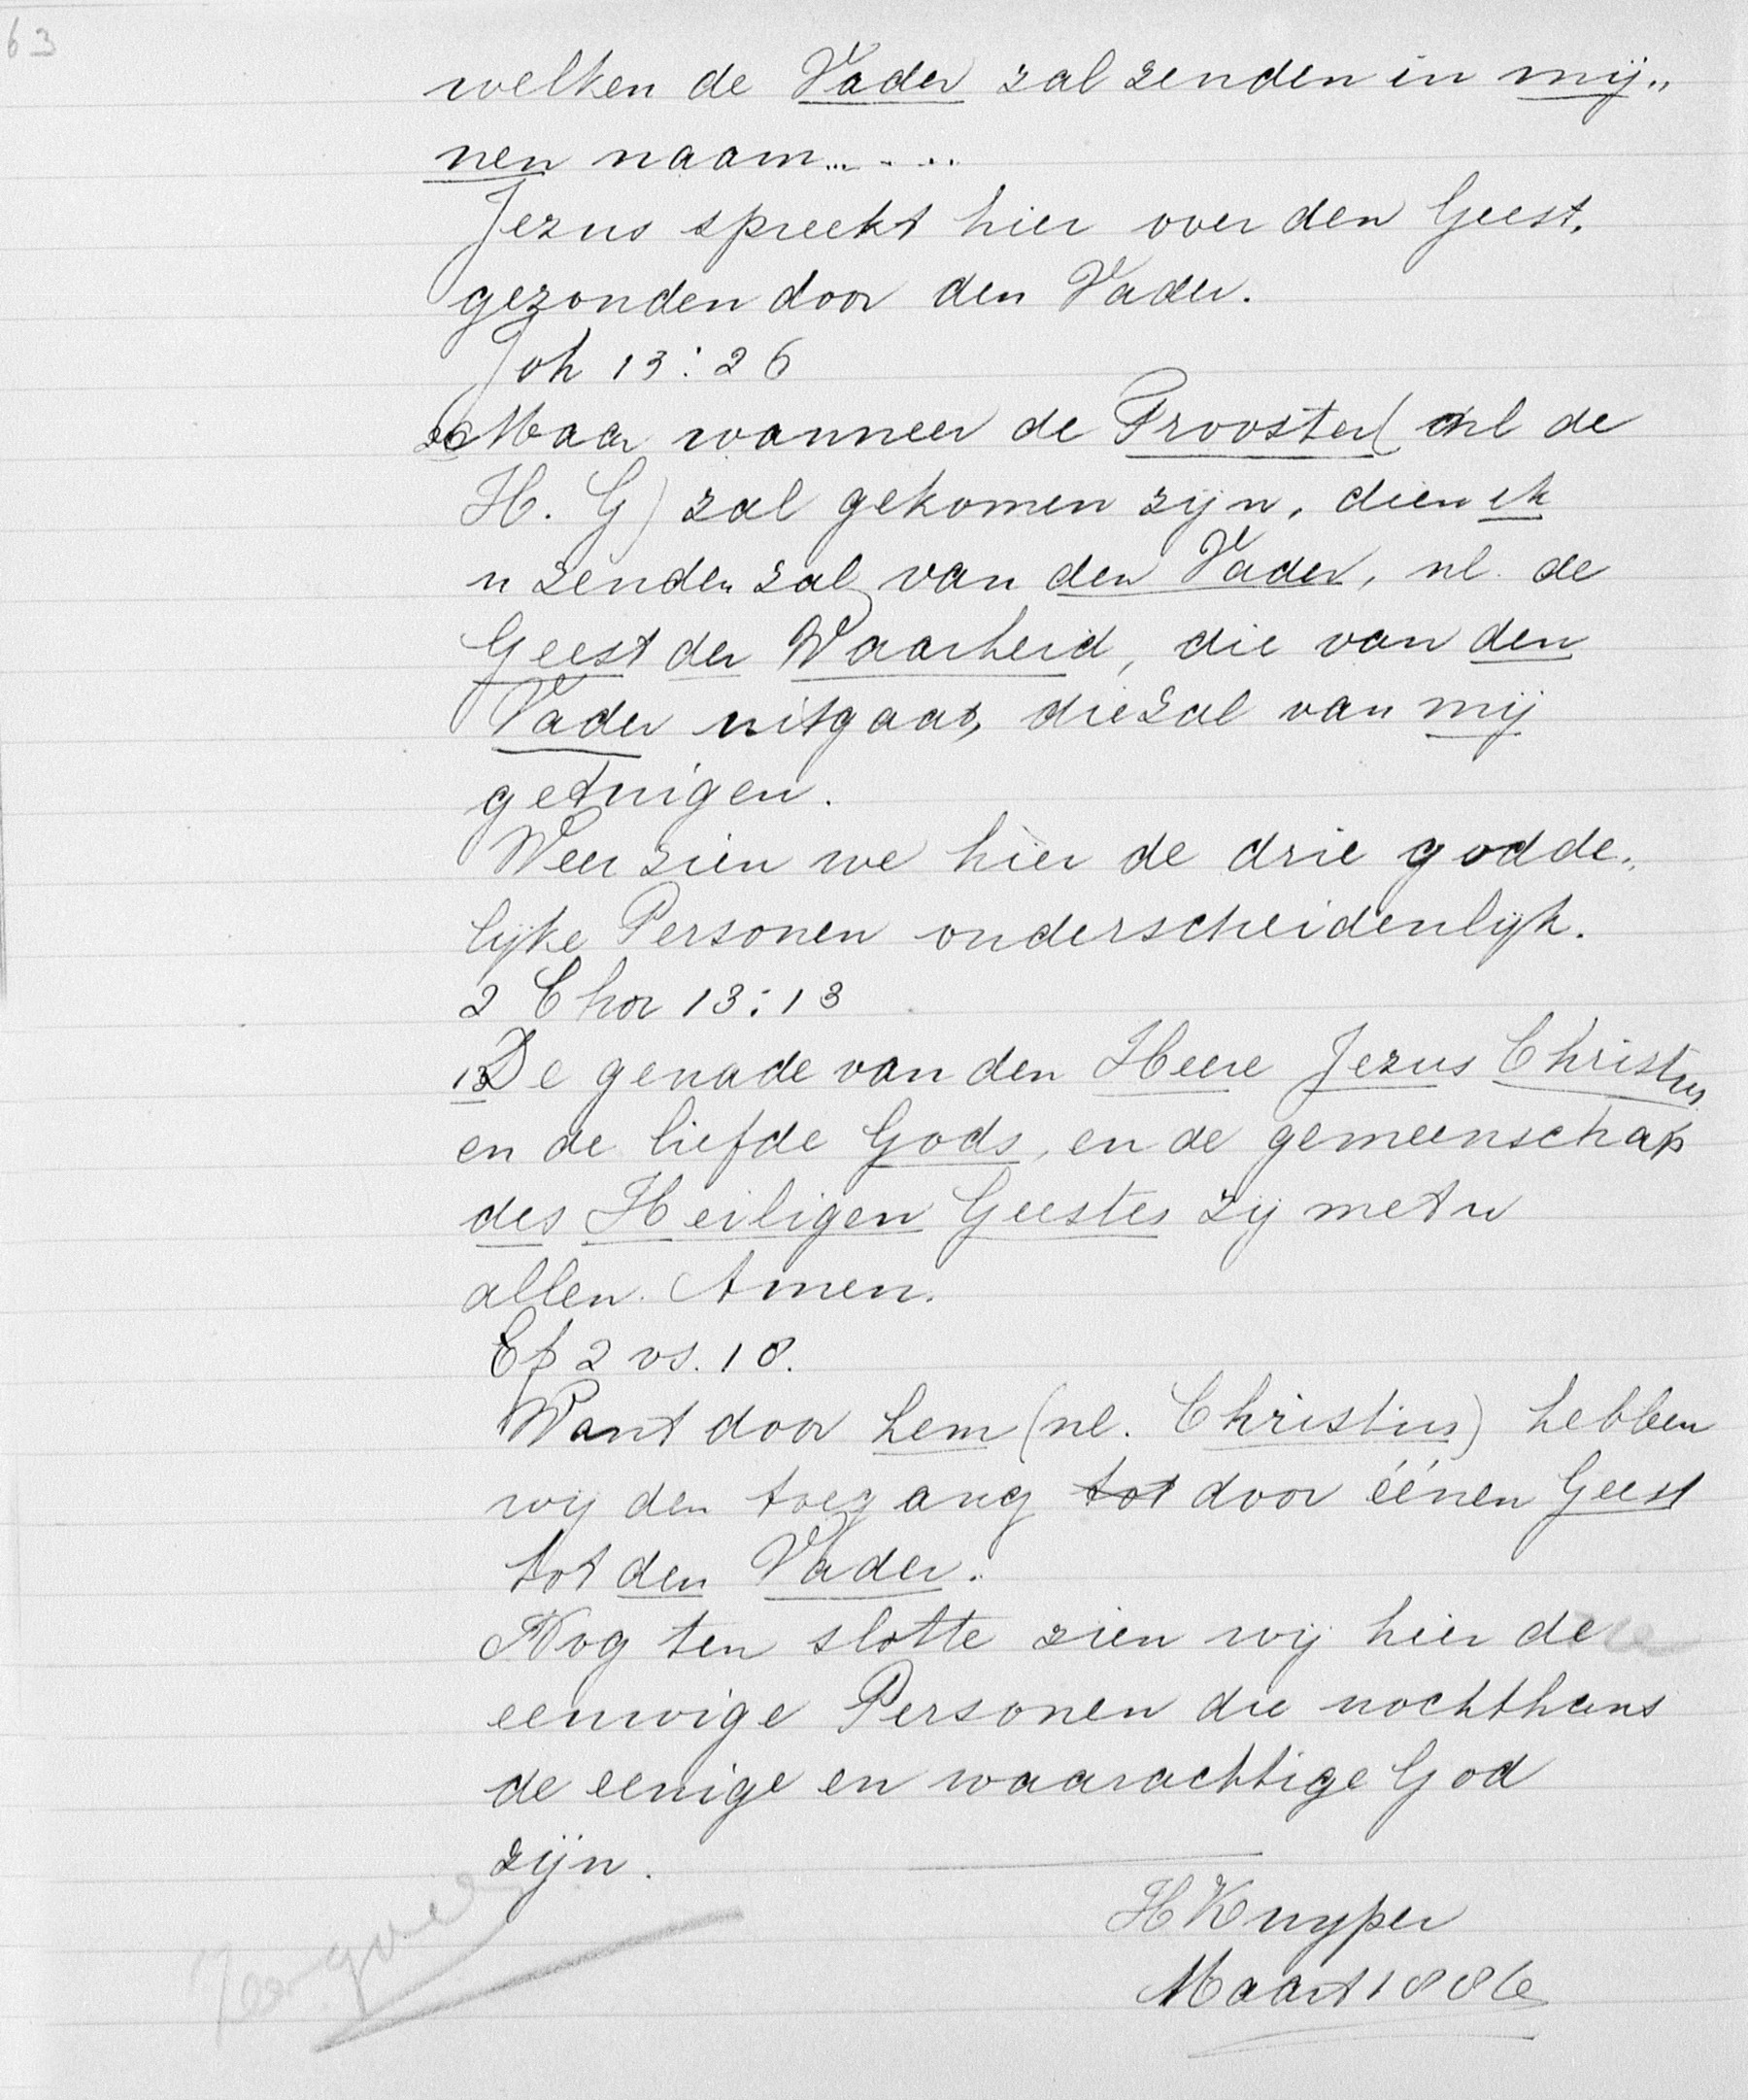 63
welken de Vader zal zenden in mij„
nen naam.......
Jezus spreekt hier over den Geest,
gezonden door den Vader.
Joh 13:26
26 Maar wanneer de Trooster (nl de
H. G) zal gekomen zijn, dien ik
u zenden zal van den Vader, nl. de
Geest der Waarheid, die van den
Vader uitgaat, die zal van mij
getuigen.
Weer zien we hier de drie godde„
lijke Personen onderscheidenlijk.
2 Chor 13:13
13 De genade van den Heere Jezus Christus
en de liefde Gods, en de gemeenschap
des Heiligen Geestes zij met u
allen. Amen.
Ef 2 vs. 18.
Want door hem (nl. Christus) hebben
wij den toegang tot door éénen Geest
tot den Vader.
Nog ten slotte zien wij hier de
eeuwige Personen die nochthans
de eenige en waarachtige God
zijn.
Zeer goed
H Kuyper
Maart 1886